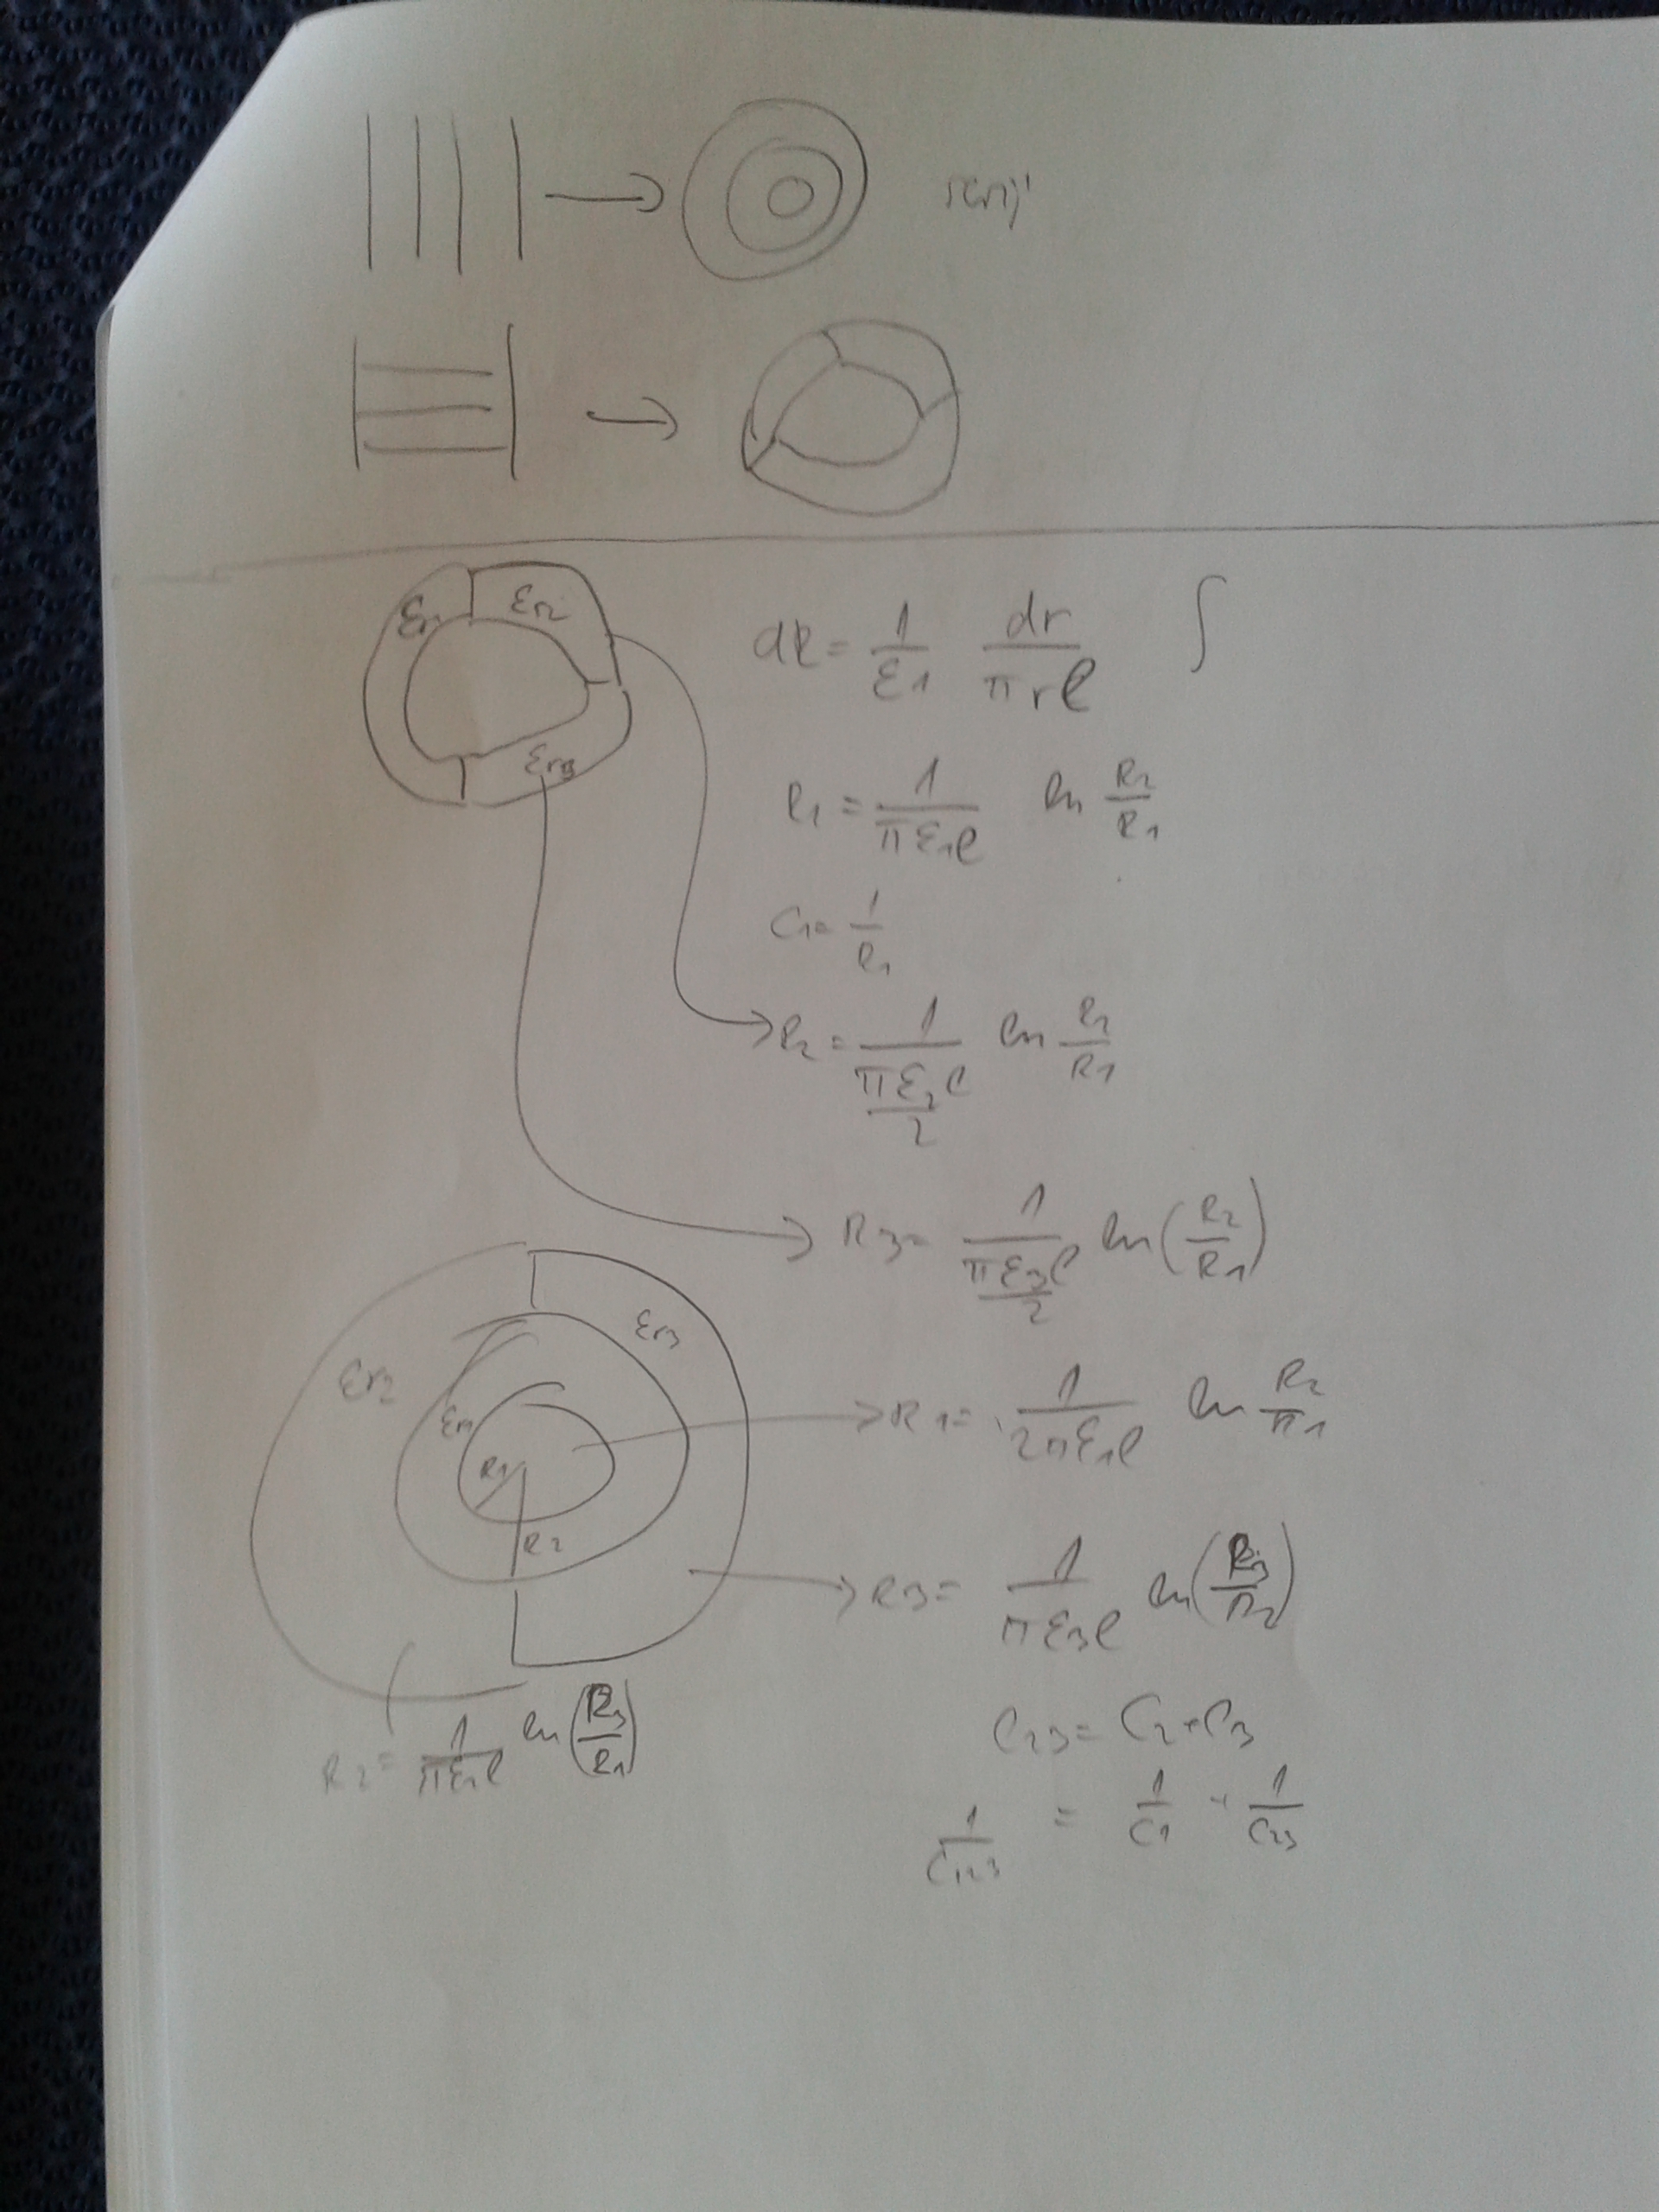 εr1 εr2
dR = 1/ε1 dr/πrl ∫
εr3
R1 = 1/πε1l ln R2/R1
C1 = 1/R1
R2 = 1/(πε2l/2) ln R2/R1
R3 = 1/(πε3l/2) ln(R2/R1)
εr3
εr2
εr1
R1 = 1/2πε1l ln R2/R1
R1
R2
R3 = 1/πε3l ln(R3/R2)
R2 = ln(R3/R1)
C23 = C2 + C3
1/C123 = 1/C1 + 1/C23